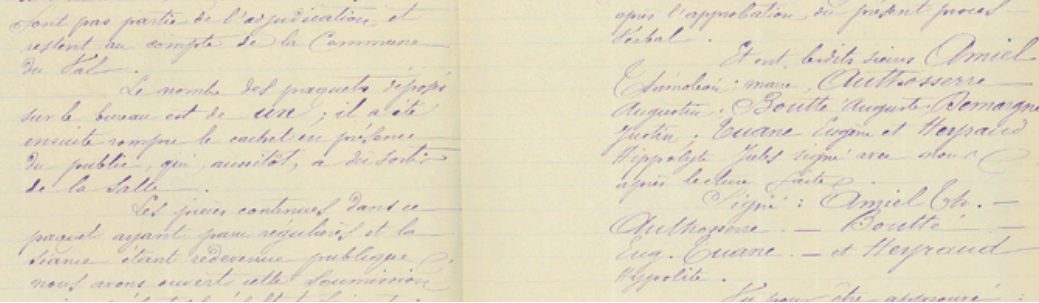 font pas partie de l'adjudication, et
restent au compte de la Commune
du Val.
Le nombre des paquets déposés
sur le bureau est de un ; il a été
ensuite rompre le cachet en présence
du public, qui, aussitôt, a dû sortir
de la Salle.
Les pièces contenues dans ce
paquet ayant paru régulières et la
séance étant redevenue publique
nous avons ouvert cette Soumission
après l'approbation du présent procès
Verbal.
Et ont, lesdits sieurs Amiel
maire, Authosserre
Augustin, Boutté Auguste,
Justin, Euane Eugène et Heyraud
Hippolyte Jules signé avec nous
après lecture faite.
Signé : Amiel Th. —
Authosserre. — Boutté —
Eug. Euane. — et Heyraud
Hypolite.
Vu pour être approuvé :